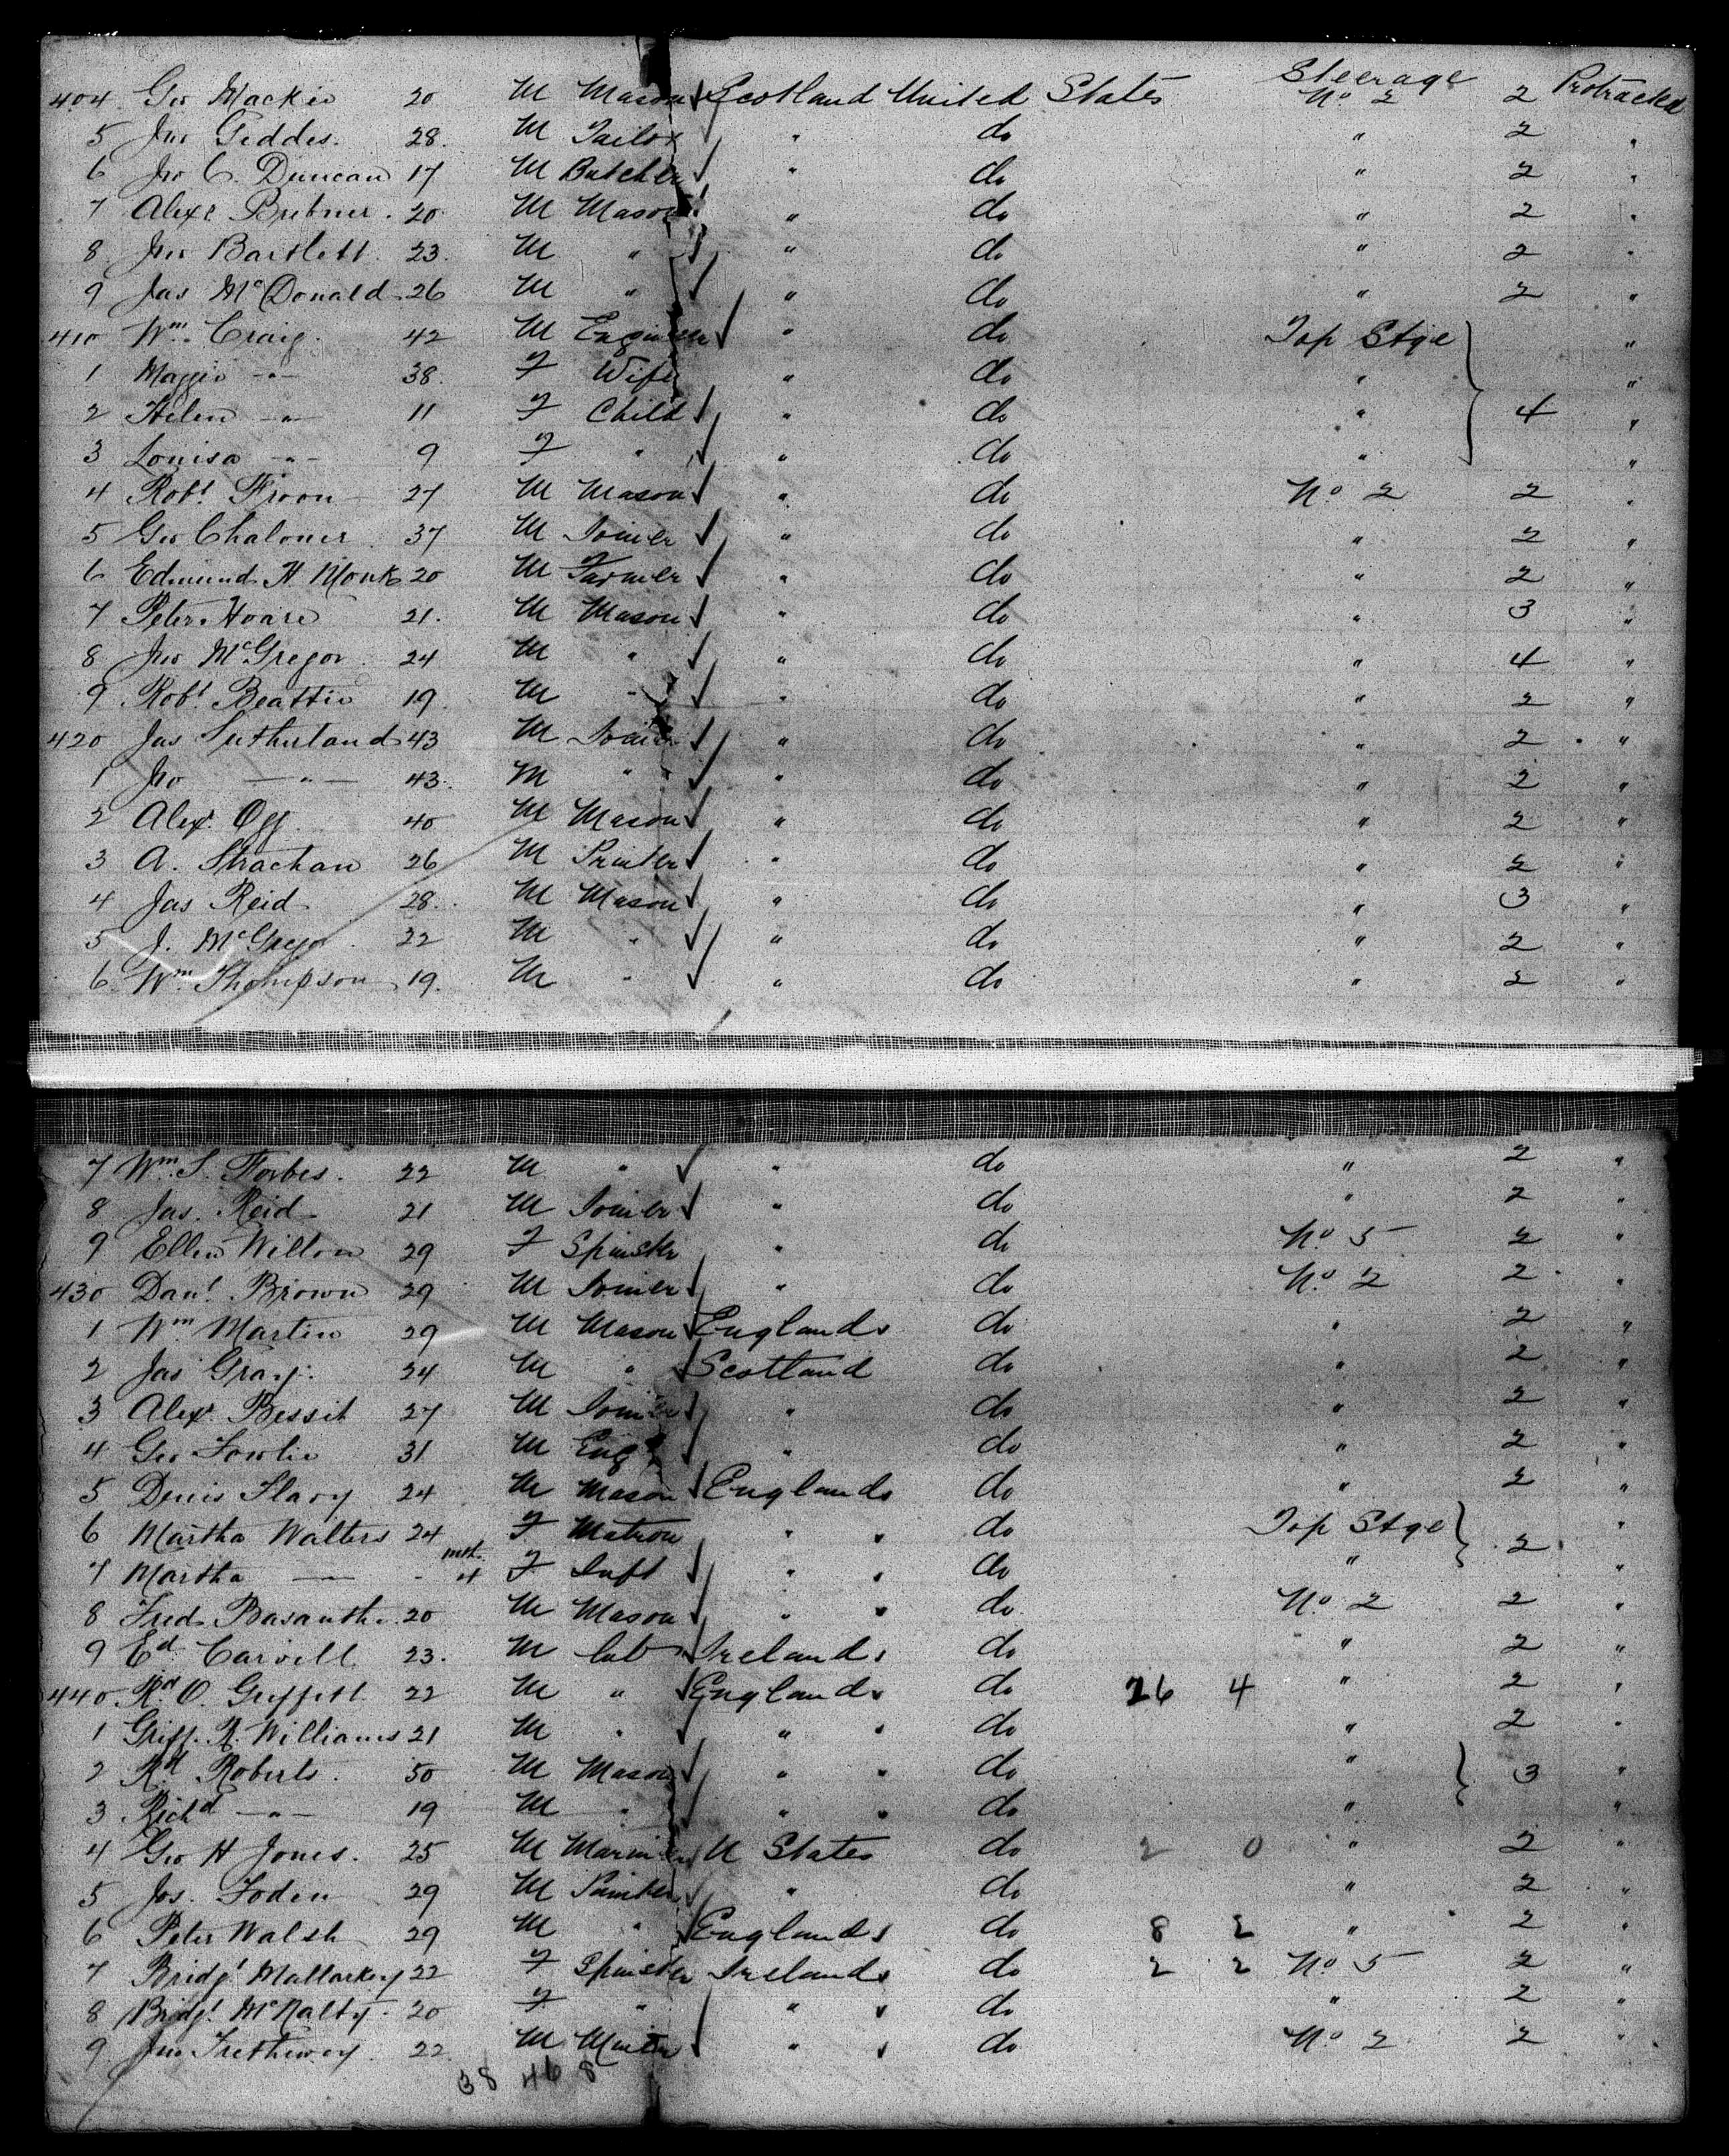 Steerage
404 Geo Mackie 20 M Mason Scotland United States No 2 2 Protracted
5 Jno Geddes. 28. M Tailor " do " 2 "
6 Jno C. Duncan 17 M Butcher " do " 2 "
7 Alexr Brebner. 20. M Mason " do " 2 "
8. Jno Bartlett. 23. M " " do " 2 "
9 Jas McDonald 26 M " " do " 2 "
410 Wm. Craig. 42 M Engineer " do Top Stge "
1 Maggie -"- 38. F Wife " do " "
2 Helen -"- 11 F Child " do " 4 "
3 Louisa -"- 9 F " " do " "
4 Robt. Froon 27 M Mason " do No 2 2 "
5 Geo Chaloner 37 M Joiner " do " 2 "
6 Edmund H Monk 20 M Farmer " do " 2 "
7 Peter Hoare 21. M Mason " do " 3 "
8 Jno McGregor. 24 M " " do " 4 "
9 Robt Beattie 19. M " " do " 2 "
420 Jas Sutherland 43 M Joiner " do " 2 "
1 Jno -"- 43. M " " do " 2 "
2 Alexr. Ogg. 40 M Mason " do " 2 "
3 A. Strachan 26 M Printer " do " 2 "
4 Jas Reid 28. M Mason " do " 3 "
5 J. McGregor. 22 M " " do " 2 "
6 Wm. Thompson 19. M " " do " 2 "
7 Wm. S. Forbes. 22 M " " do " 2 "
8 Jas. Reid 21 M Joiner " do " 2 "
9 Ellen Wilton 29 F Spinster " do No. 5 2 "
430 Danl. Brown 29 M Joiner " do No. 2 2 "
1 Wm Martin 29 M Mason England do " 2 "
2 Jas Gray. 24 M " Scotland do " 2 "
3 Alexr. Bessit 27 M Joiner " do " 2 "
4 Geo Fowlie 31 M Engr " do " 2 "
5 Denis 24 M Mason England do " 2 "
6 Martha Walters 24 F Matron " " do Top Stge 2 "
7 Martha — - mth. 4 F Inft " " do " "
8 Fred 20 M Mason " " do No. 2 2 "
9 Ed Carvill 23. M lab Ireland do " 2 "
440 Rd. O. Griffith 22 M " England do 26 4 " 2 "
1 Griff. R. Williams 21 M " " " do " 2 "
2 Rd Roberts. 50 M Mason " " do " 3 "
3 Richd -"- 19 M " " " do " "
4 Geo H Jones. 25 M Mariner U States do 2 0 " 2 "
5 Jos. Foden 29 M Painter " do " 2 "
6 Peter Walsh 29 M " England do 8 2 " 2 "
7 Bridgt Mallarkey 22 F Spinster Ireland do 2 2 No 5 2 "
8 Bridgt. McNalty. 20 F " " " do " 2 "
9. Jno Trethewey. 22. M Miner " " do No 2 2 "
38 46 8